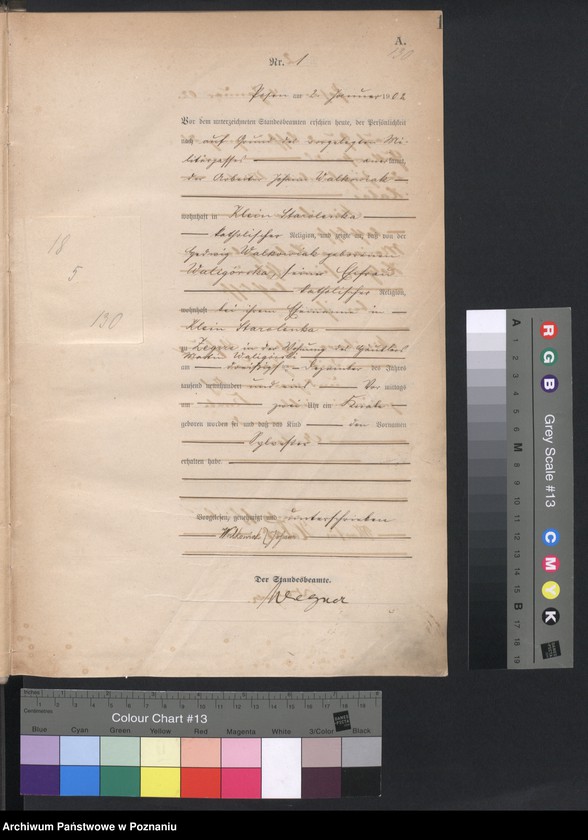 A.
130
Nr. 1
Posen am 2. Januar 1902
Vor dem unterzeichneten Standesbeamten erschien heute, der Persönlichkeit
nach auf Grund des vorgelegten Mi-
litärpasses anerkannt,
der Arbeiter Johann Walkowiak
wohnhaft in Klein Starolenka
katholischer Religion, und zeigte an, daß von der
Hedwig Walkowiak geborenen
Waligórska, seiner Ehefrau
katholischer Religion,
wohnhaft bei ihrem Ehemanne in
Klein Starolenka
zu Zegrze in der Wohnung des Häuslers
Waligórski
am Dezember des Jahres
tausend neunhundert und eins Vor mittags
um zwölf Uhr ein Knabe
geboren worden sei und daß das Kind den Vornamen
Sylvester
erhalten habe.
Vorgelesen, genehmigt und unterschrieben
Walkowiak Johann
Der Standesbeamte.
Wegner
18
5
130
Colour Chart #13
Blue Cyan Green Yellow Red Magenta White 3/Color Black
Grey Scale #13
R G B C M Y K
Archiwum Państwowe w Poznaniu